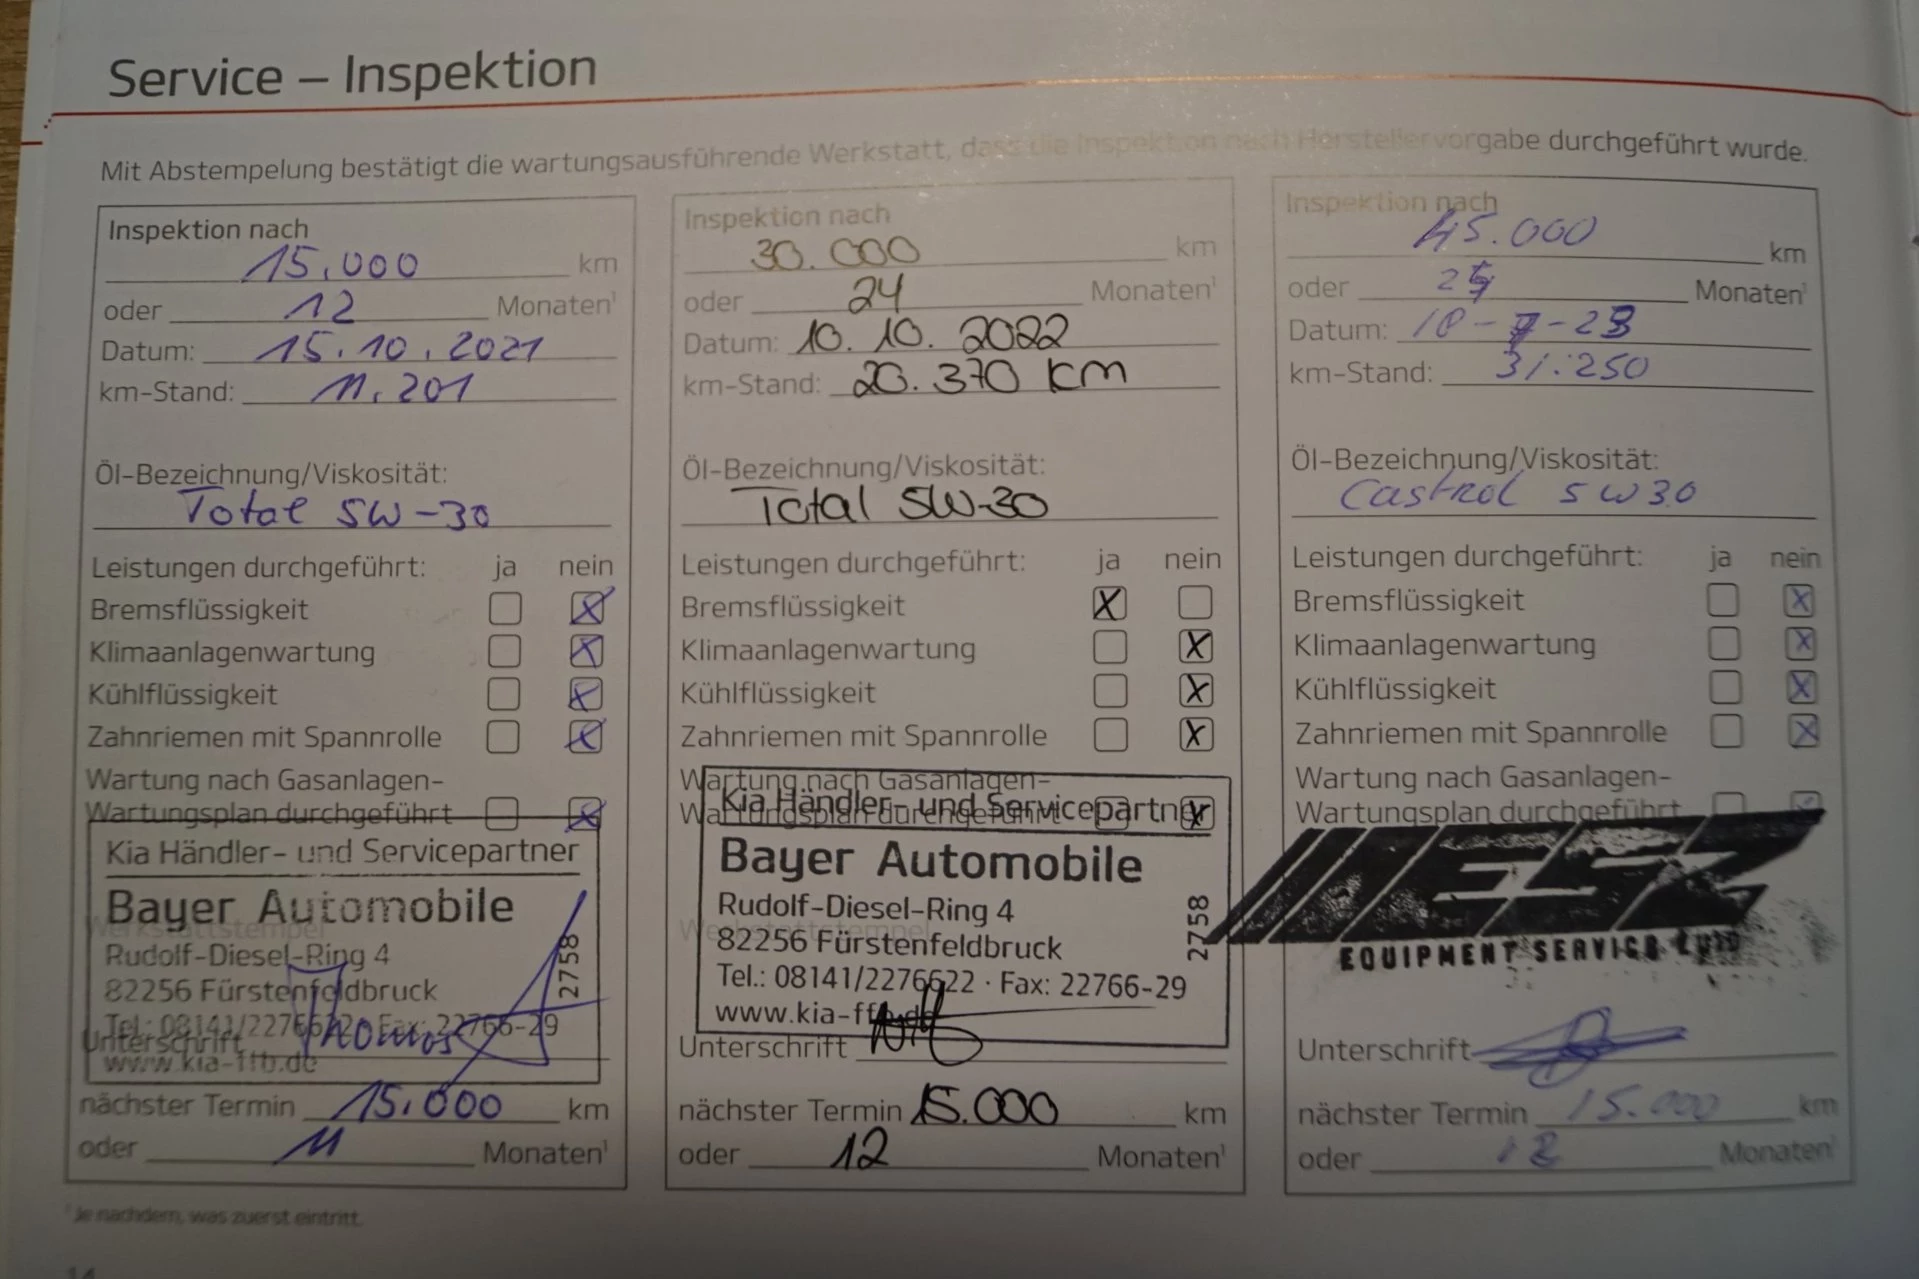 Service – Inspektion
Mit Abstempelung bestätigt die wartungsausführende Werkstatt, dass die Inspektion nach Herstellervorgabe durchgeführt wurde.
Inspektion nach
15.000 km
oder 12 Monaten¹
Datum: 15.10.2021
km-Stand: 11.201
Öl-Bezeichnung/Viskosität:
Total 5W-30
Leistungen durchgeführt: ja nein
Bremsflüssigkeit X
Klimaanlagenwartung X
Kühlflüssigkeit X
Zahnriemen mit Spannrolle X
Wartung nach Gasanlagen-
Wartungsplan durchgeführt X
Kia Händler- und Servicepartner
Bayer Automobile
Werkstattstempel
Rudolf-Diesel-Ring 4
82256 Fürstenfeldbruck
Tel.: 08141/2276622 · Fax: 22766-29
www.kia-ffb.de
2758
Unterschrift
nächster Termin 15.000 km
oder 11 Monaten¹
Inspektion nach
30.000 km
oder 24 Monaten¹
Datum: 10.10.2022
km-Stand: 20.370 KM
Öl-Bezeichnung/Viskosität:
Total 5W-30
Leistungen durchgeführt: ja nein
Bremsflüssigkeit X
Klimaanlagenwartung X
Kühlflüssigkeit X
Zahnriemen mit Spannrolle X
Wartung nach Gasanlagen-
Wartungsplan durchgeführt X
Kia Händler- und Servicepartner
Bayer Automobile
Werkstattstempel
Rudolf-Diesel-Ring 4
82256 Fürstenfeldbruck
Tel.: 08141/2276622 · Fax: 22766-29
www.kia-ffb.de
2758
Unterschrift
nächster Termin 15.000 km
oder 12 Monaten¹
Inspektion nach
45.000 km
oder Monaten¹
Datum:
km-Stand: 31.250
Öl-Bezeichnung/Viskosität:
Castrol 5W30
Leistungen durchgeführt: ja nein
Bremsflüssigkeit X
Klimaanlagenwartung X
Kühlflüssigkeit X
Zahnriemen mit Spannrolle X
Wartung nach Gasanlagen-
Wartungsplan durchgeführt
ESZ
EQUIPMENT SERVICE
Unterschrift
nächster Termin 15.000 km
oder 12 Monaten¹
¹ Je nachdem, was zuerst eintritt.